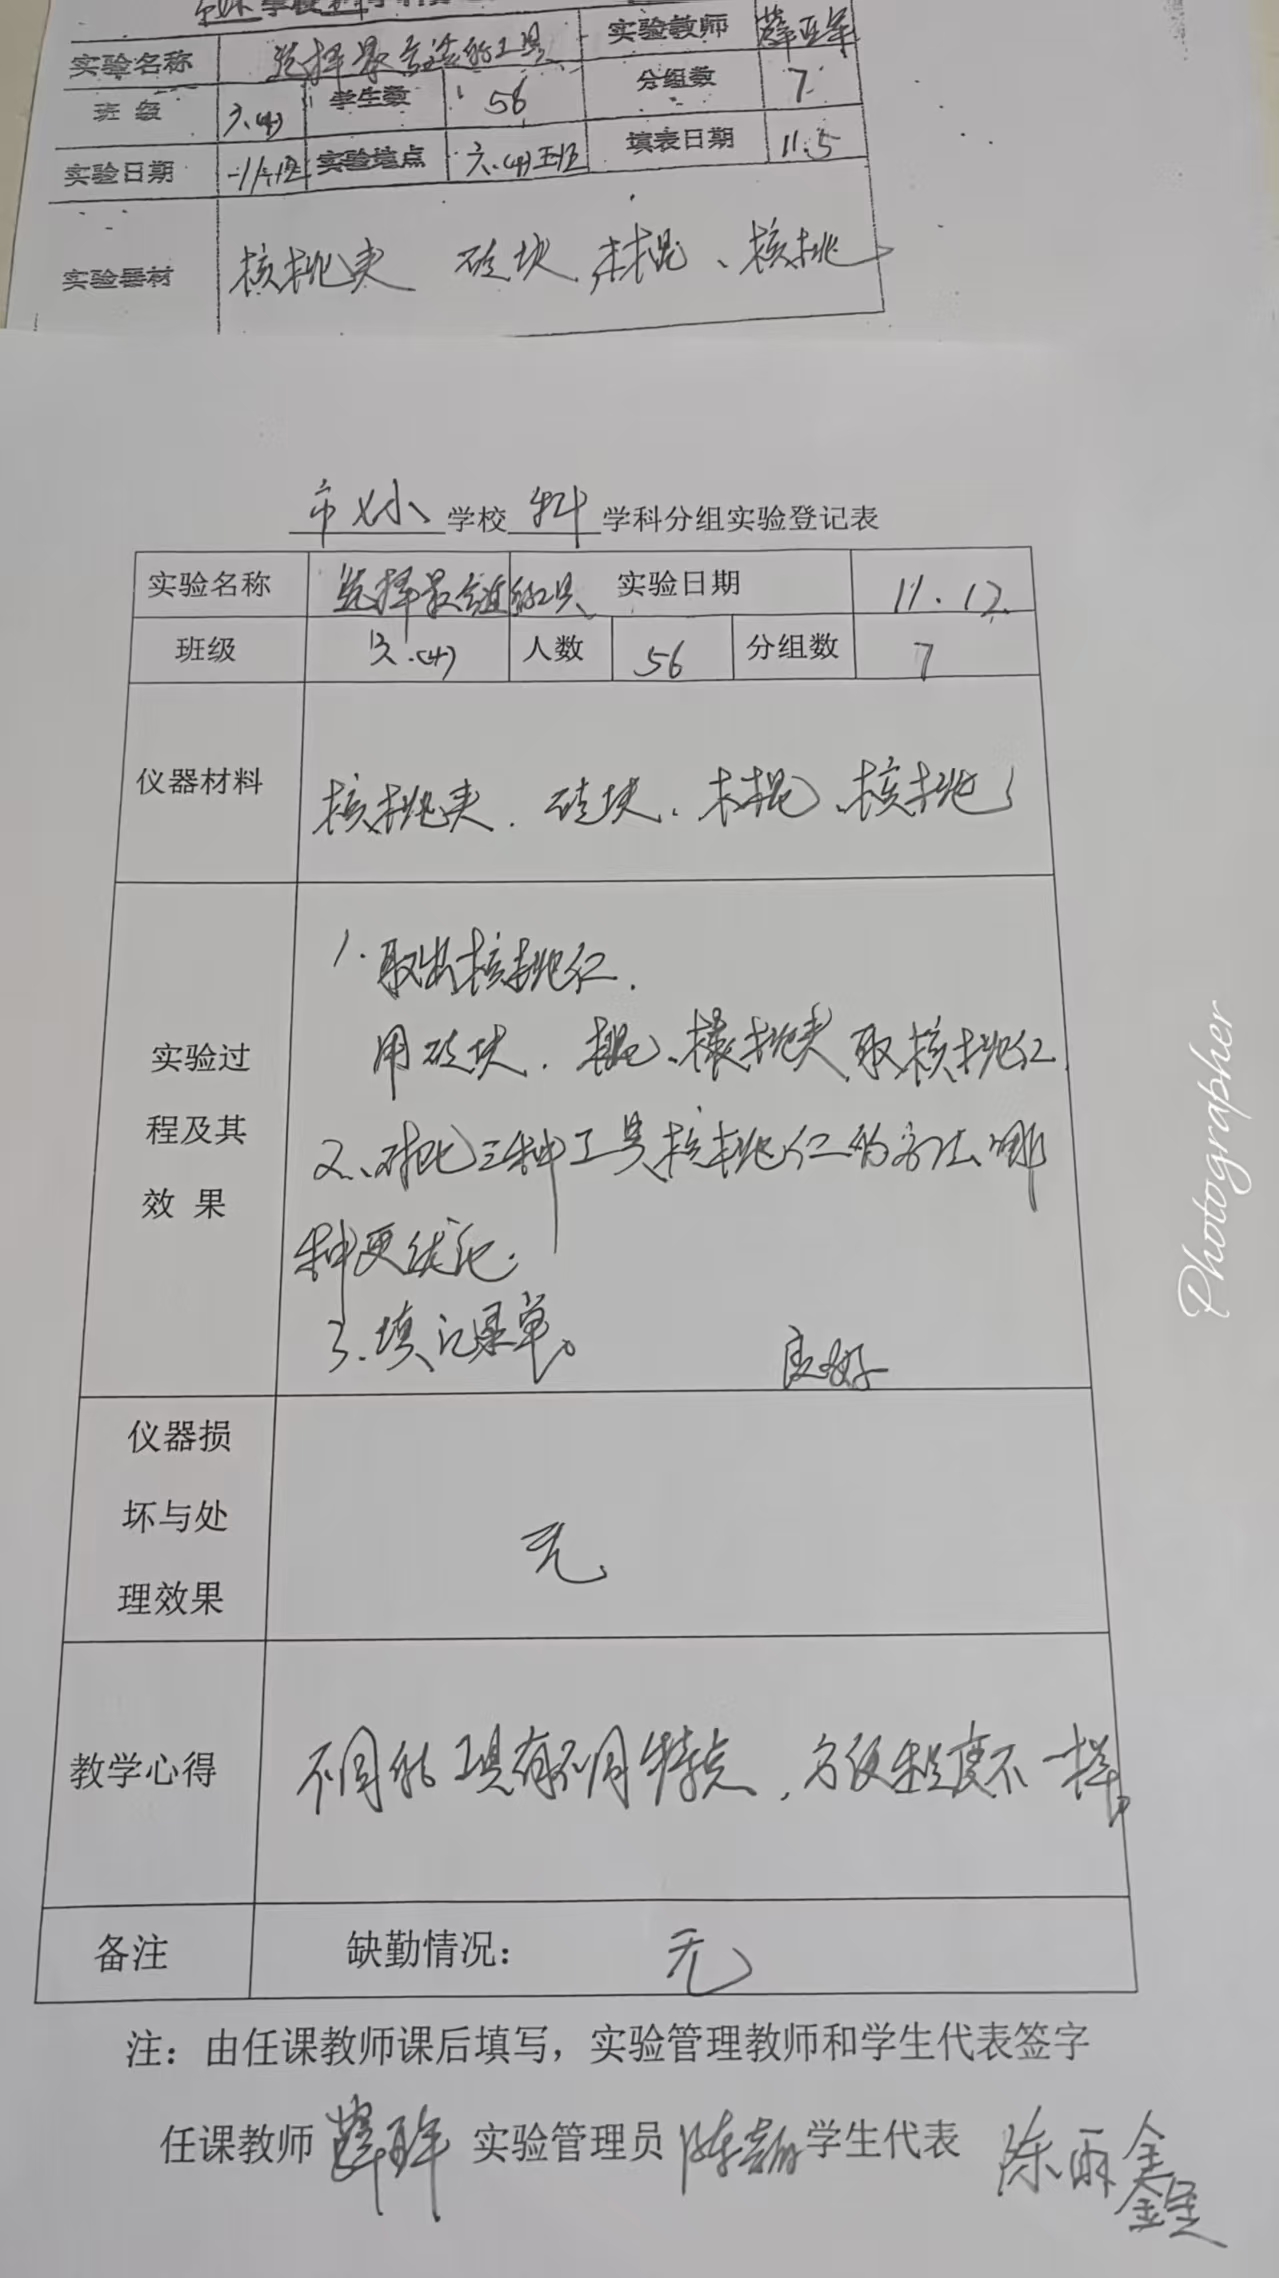 实验名称 选择最合适的工具 实验教师
班级 六.(4) 学生数 56 分组数 7
实验日期 实验地点 六.(4) 填表日期 11.5
实验器材 核桃夹 砖块、木棍、核桃
学校 科 学科分组实验登记表
实验名称 选择最合适的工具 实验日期 11.12
班级 六.(4) 人数 56 分组数 7
仪器材料 核桃夹、砖块、木棍、核桃
1.取出核桃仁.
实验过 用砖块、棍、核桃夹取核桃仁
程及其 2、对比三种工具核桃仁的方法哪
效 果 种更优化.
3.填记录单。 良好
仪器损
坏与处
理效果
无
教学心得 不同的工具有不同特点,方便程度不一样。
备注 缺勤情况: 无
注:由任课教师课后填写,实验管理教师和学生代表签字
任课教师 实验管理员 学生代表 陈丽鑫
Photographer